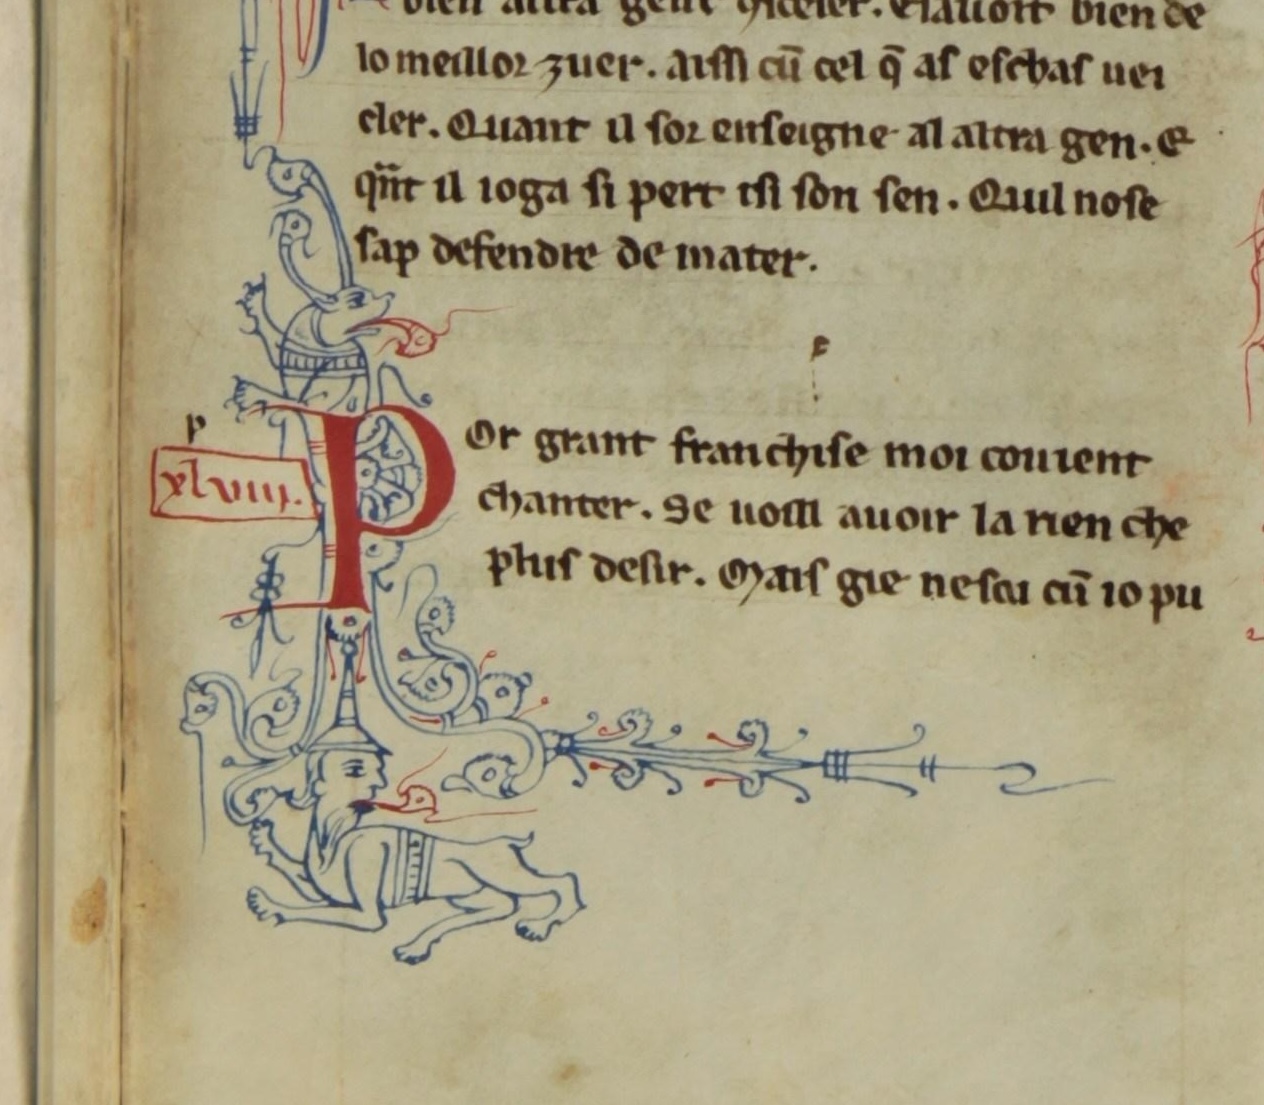 bien altra gent ꝯseler. Elauoit bien de
lo meillor zuer. aissi cū cel q̄ as eschas uei
cler. Quant il sor enseigne al altra gen. E
qn̄t il ioga si pert tsi son sen. Quil nose
sap defendre de mater.
p
xlviiij.
Por grant franchise moi couient
chanter. Se uoill auoir la rien che
plus desir. Mais gie nesai cū io pu